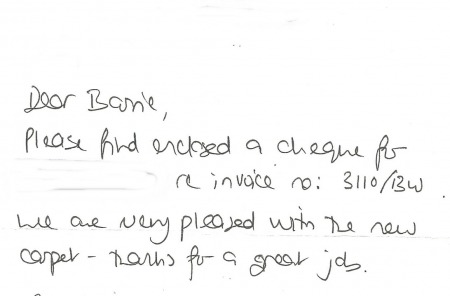 Dear Barrie,
Please find enclosed a cheque for
re invoice no: 3110/BW.
We are very pleased with the new
carpet - thanks for a great job.